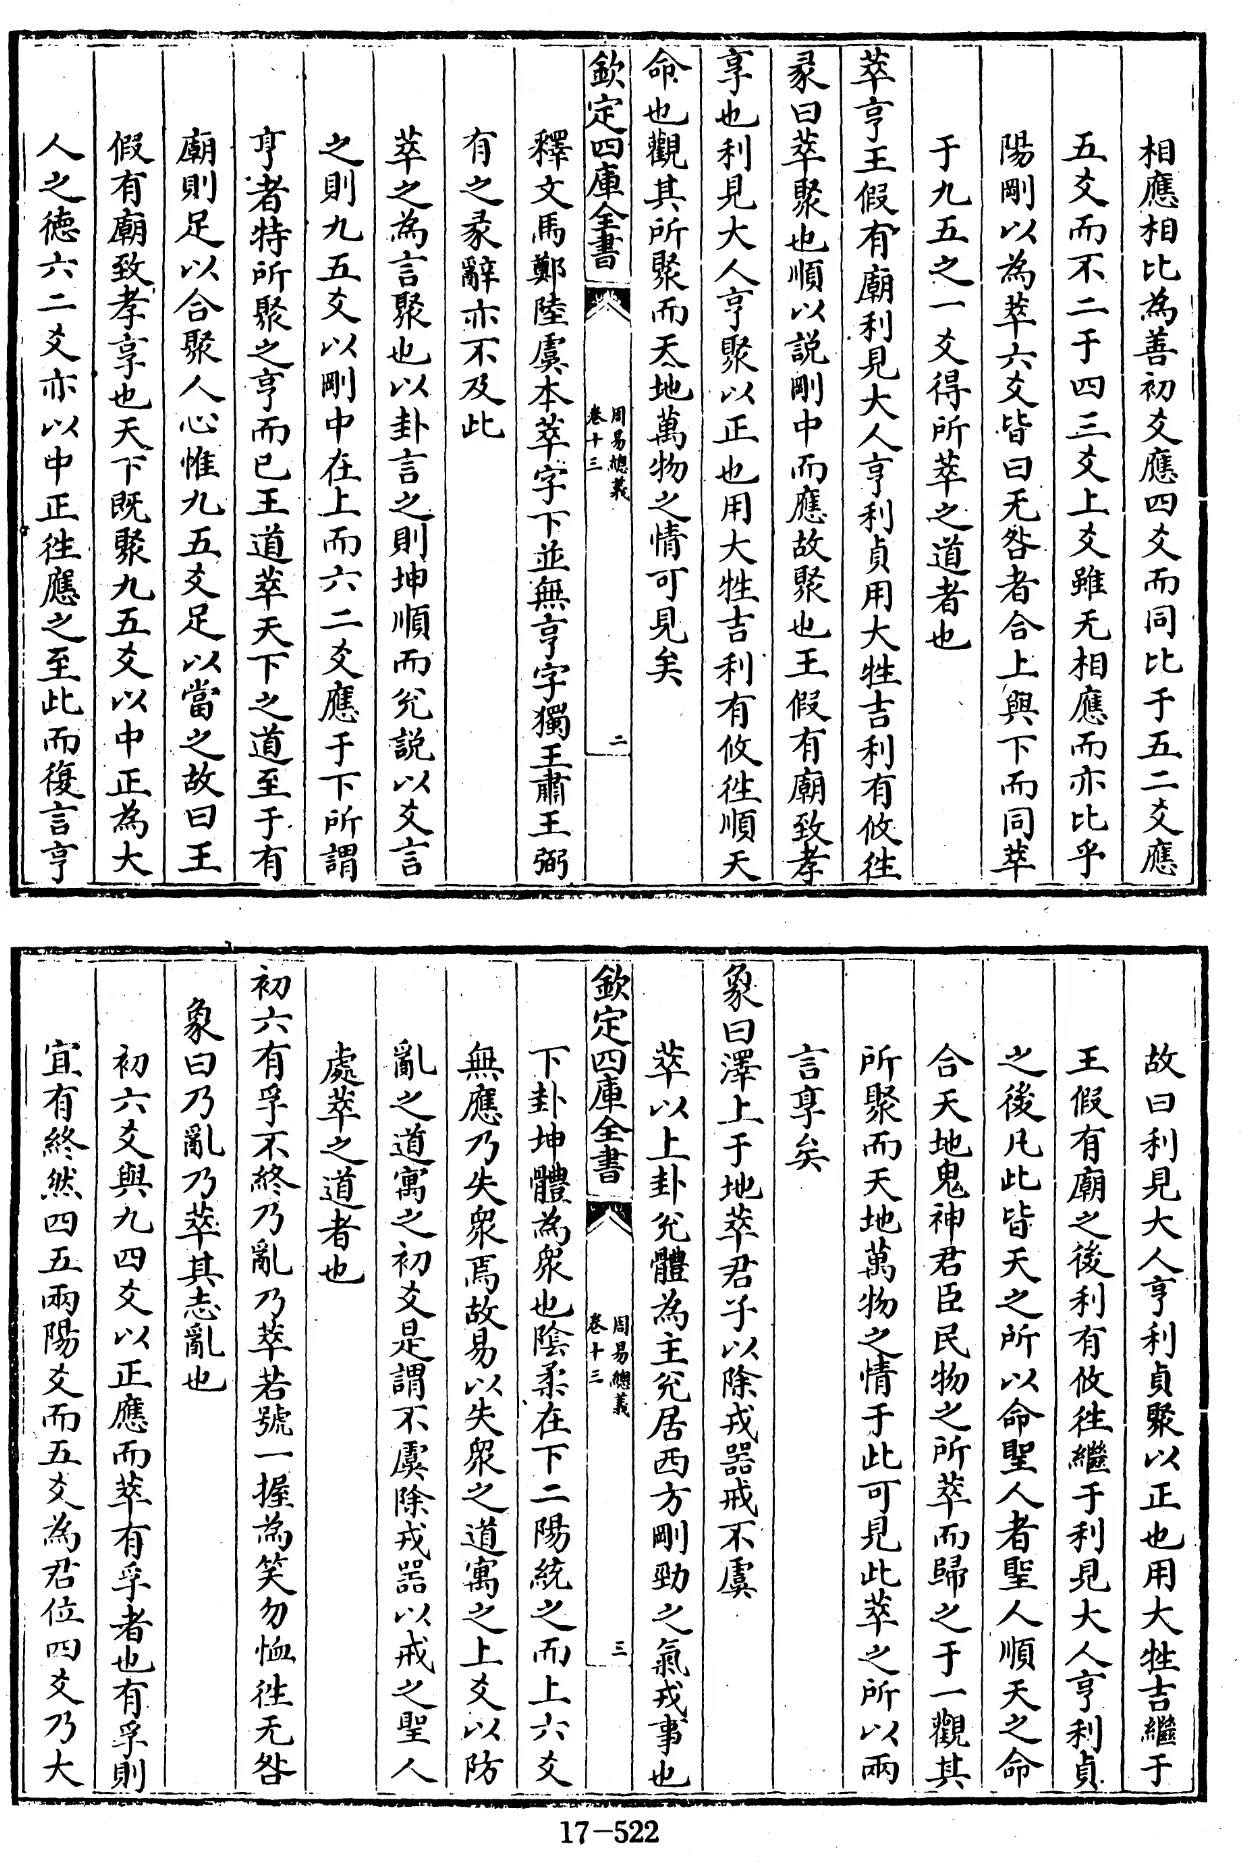 相應相比為善初爻應四爻而同比于五二爻應
五爻而不二于四三爻上爻雖无相應而亦比乎
陽剛以為萃六爻皆曰无咎者合上與下而同萃
于九五之一爻得所萃之道者也
萃亨王假有廟利見大人亨利貞用大牲吉利有攸徃
彖曰萃聚也順以説剛中而應故聚也王假有廟致孝
享也利見大人亨聚以正也用大牲吉利有攸徃順天
命也觀其所聚而天地萬物之情可見矣
欽定四庫全書
周易總義
卷十三
二
釋文馬鄭陸虞本萃字下並無亨字獨王肅王弼
有之彖辭亦不及此
萃之為言聚也以卦言之則坤順而兊説以爻言
之則九五爻以剛中在上而六二爻應于下所謂
亨者特所聚之亨而已王道萃天下之道至于有
廟則足以合聚人心惟九五爻足以當之故曰王
假有廟致孝享也天下既聚九五爻以中正為大
人之徳六二爻亦以中正徃應之至此而復言亨
故曰利見大人亨利貞聚以正也用大牲吉繼于
王假有廟之後利有攸徃繼于利見大人亨利貞
之後凡此皆天之所以命聖人者聖人順天之命
合天地鬼神君臣民物之所萃而歸之于一觀其
所聚而天地萬物之情于此可見此萃之所以兩
言亨矣
象曰澤上于地萃君子以除戎器戒不虞
萃以上卦兊體為主兊居西方剛勁之氣戎事也
欽定四庫全書
周易總義
卷十三
三
下卦坤體為衆也陰柔在下二陽統之而上六爻
無應乃失衆焉故易以失衆之道寓之上爻以防
亂之道寓之初爻是謂不虞除戎器以戒之聖人
處萃之道者也
初六有孚不終乃亂乃萃若號一握為笑勿恤徃无咎
象曰乃亂乃萃其志亂也
初六爻與九四爻以正應而萃有孚者也有孚則
宜有終然四五兩陽爻而五爻為君位四爻乃大
17-522